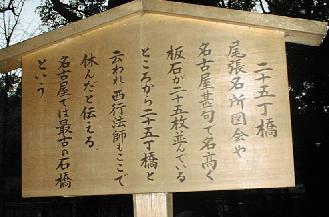 二十五丁橋
尾張名所図会や
名古屋甚句で名高く
板石が二十五枚並んでいる
ところから二十五丁橋と
云われ西行法師もここで
休んだと伝える
名古屋では最古の石橋
という